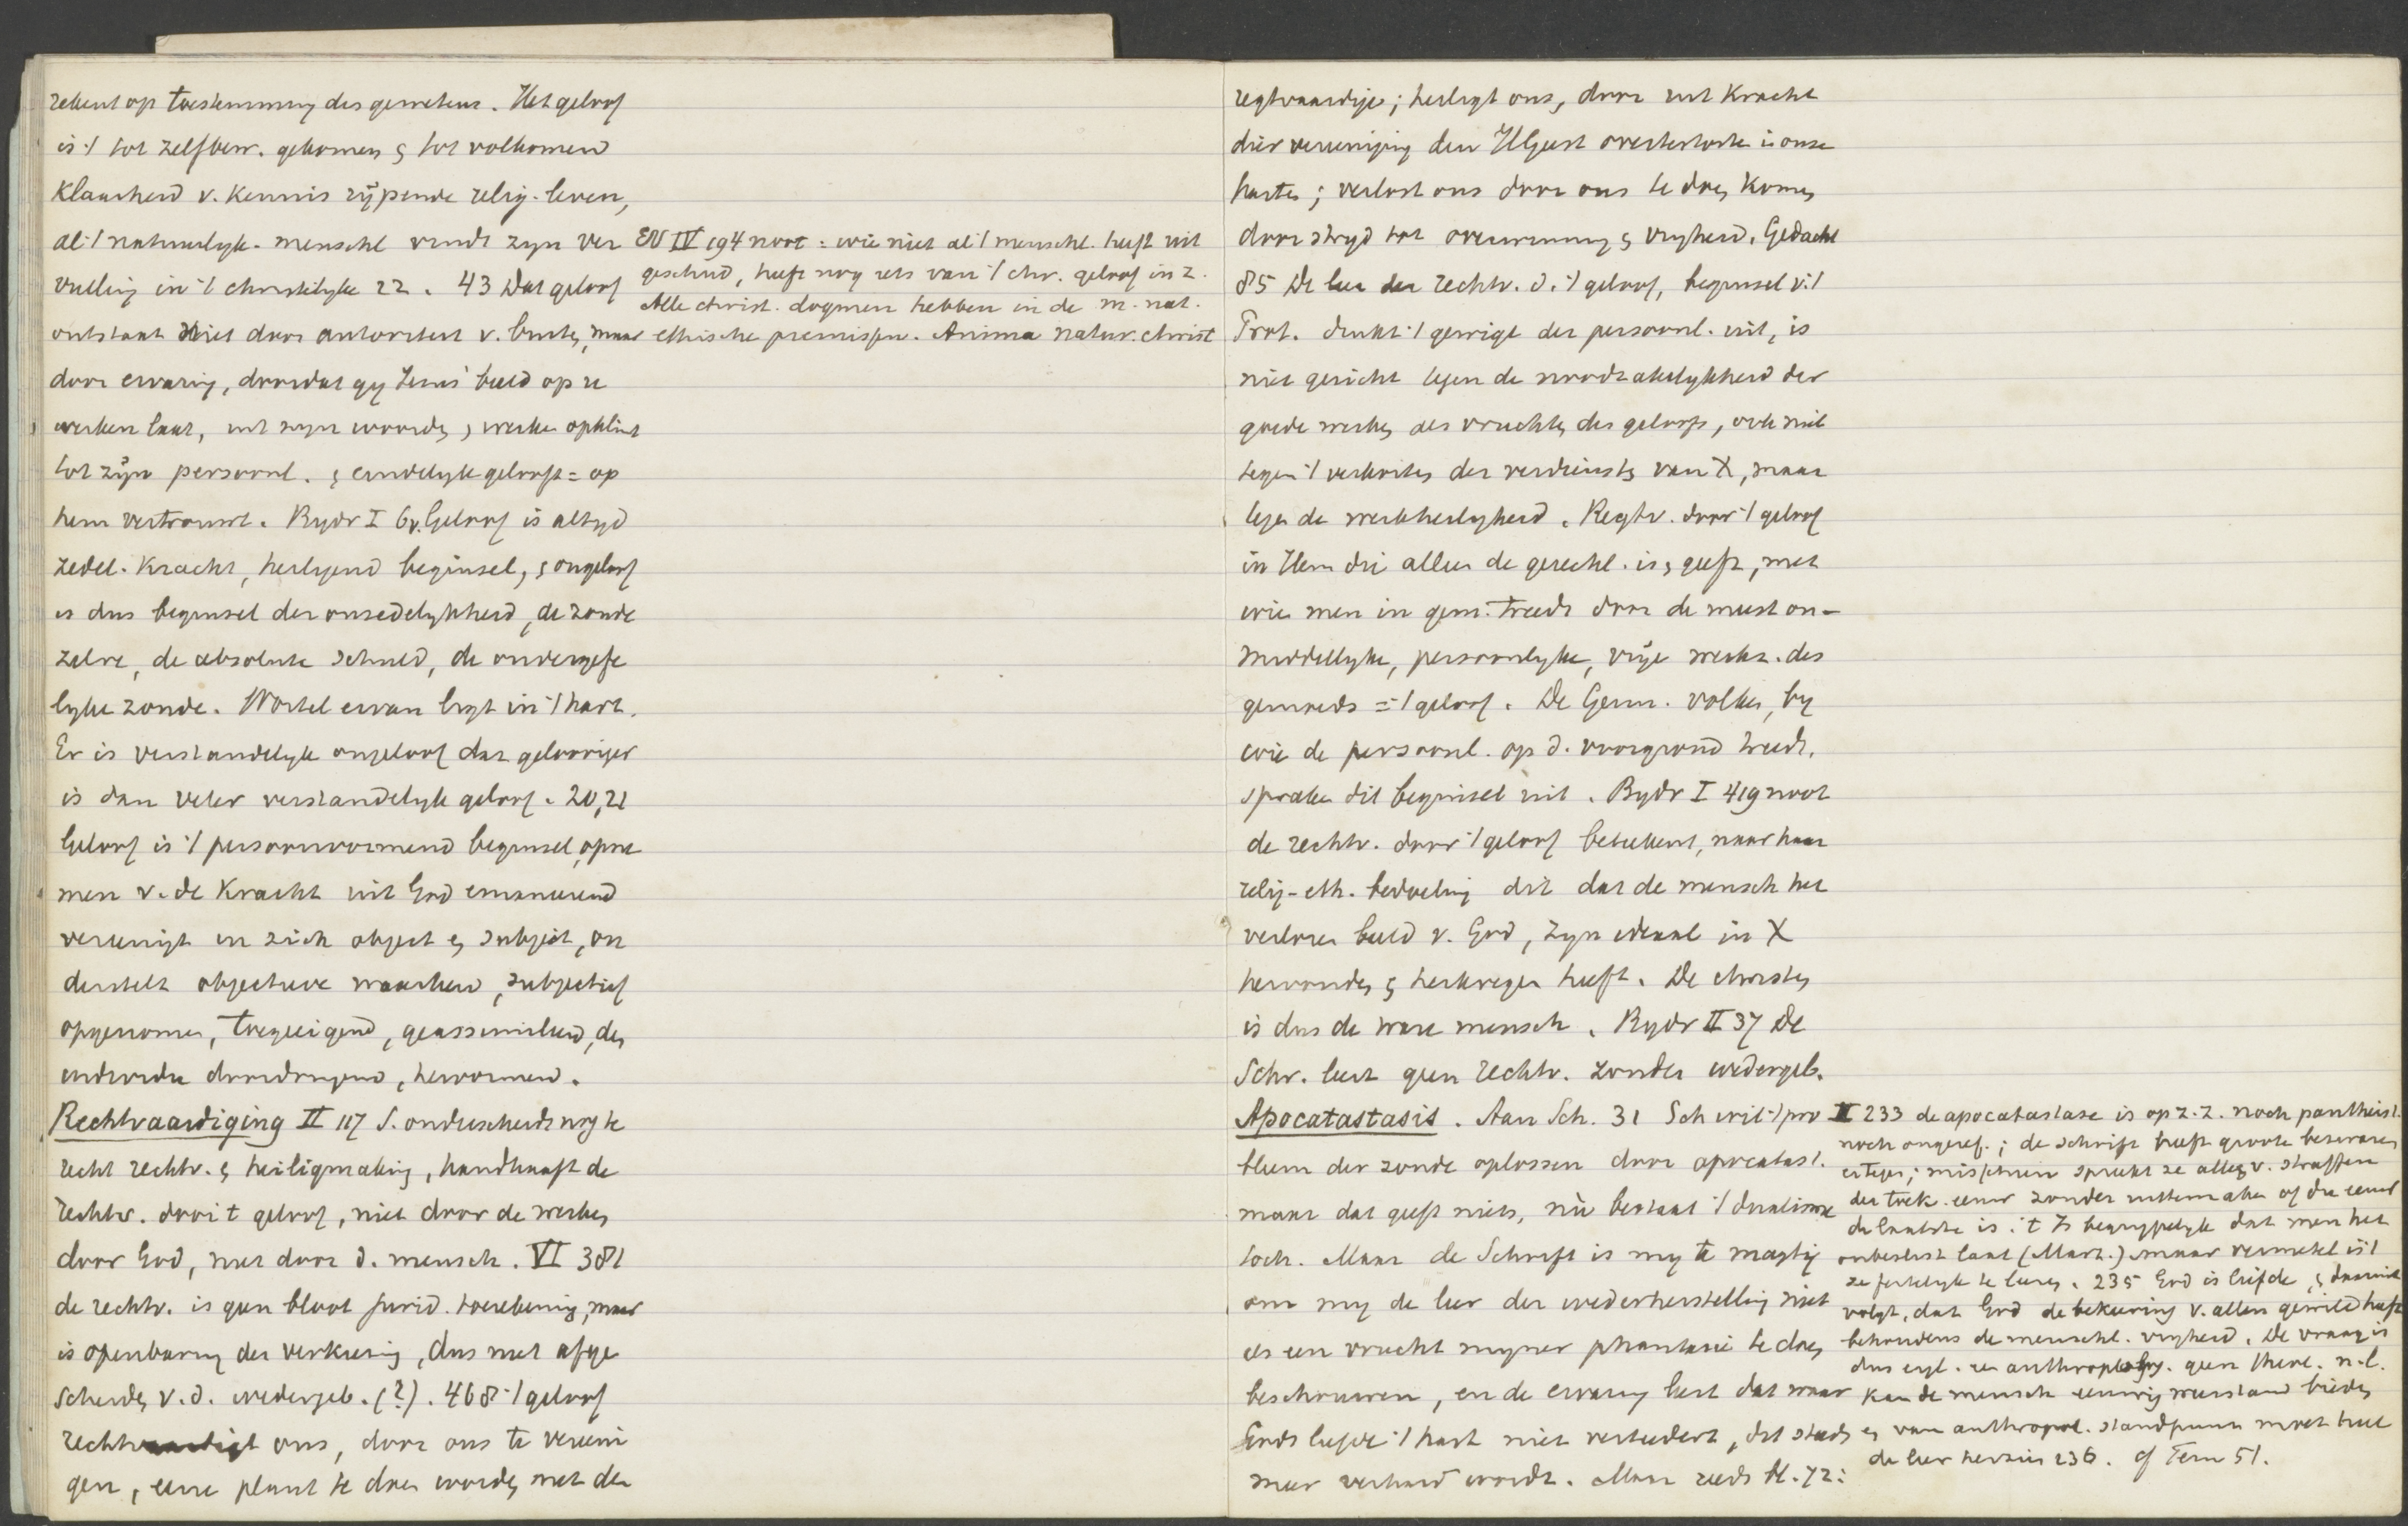 rekent op toestemming des gewetens. Het geloof
is 't tot zelfbew. gekomen & tot volkomen
klaarheid v. kennis rijpende relig. leven,
al 't natuurlijk-menschl vindt zijn ver
vulling in 't christelijke 22. 43 Dat geloof
ontstaat niet door autoriteit v. buiten, maar
door ervaring, doordat gij Jesus' beeld op u
werken laat, uit zijn woorden, werken opklimt
tot zijn persoonl. & eindelijk gelooft = op
hem vertrouwt. Bijdr I 6v. Geloof is altijd
zedel. kracht, heiligend beginsel, & ongeloof
is dus beginsel der onzedelijkheid, de zonde
zelve, de absolute schuld, de onvergefe
lijke zonde. Wortel ervan ligt in 't hart.
Er is verstandelijk ongeloof dat gelooviger
is dan veler verstandelijk geloof. 20,21
Geloof is 't persoonvormend beginsel, opne
men v. de kracht uit God emaneerend
vereenigt in zich object & subject, on
derstelt objectieve waarheid, subjectief
opgenomen, toegeeigend, geassimileerd, den
individu doordringend, hervormend.
Rechtvaardiging II 117 S. onderscheidt nog te
recht rechtv. & heiligmaking, handhaaft de
rechtv. door 't geloof, niet door de werken
door God, niet door d. mensch. VI 381
de rechtv. is geen bloot jurid. toerekening, maar
is openbaring der verkiezing, dus niet afge
scheiden v. d. wedergeb. (?). 468 't geloof
rechtvaardigt ons, door ons te vereeni
gen, eene plant te doen worden met den
EV IV 194 noot: wie niet al 't menschl. heeft uit
geschud, heeft nog iets van 't chr. geloof in z.
Alle christ. dogmen hebben in de m. nat.
ethische premissen. Anima natur. christ
regtvaardige; heiligt ons, door uit kracht
dier vereeniging den HGeest overtestorten in onze
harten; verlost ons door ons te doen komen
door strijd tot overwinning & vrijheid. Gedacht
85 De leer der rechtv. d. 't geloof, beginsel v. 't
Prot. drukt 't gewigt der persoonl. uit, is
niet gericht tegen de noodzakelijkheid der
goede werken als vruchten des geloofs, ook niet
tegen 't verkorten der verdiensten van X, maar
tegen de werkheiligheid. Regtv. door 't geloof
in Hem die alleen de gerecht. is & geeft, met
wie men in gem. treedt door de meest on-
middellijke, persoonlijke, vrije werkz. des
gemoeds = 't geloof. De Germ. volken, bij
wie de persoonl. op d. voorgrond treedt,
spraken dit beginsel uit. Bijdr I 419 noot
de rechtv. door 't geloof beteekent, naar haar
relig-eth. bedoeling dit dat de mensch het
verloren beeld v. God, zijn ideaal in X
hervonden & herkregen heeft. De christen
is dus de ware mensch. Bijdr II 37 De
Schr. leert geen rechtv. zonder wedergeb.
Apocatastasis. Aan Sch. 31 Sch wil 't pro
bleem der zonde oplossen door apocatast.
maar dat geeft niets, nù bestaat 't dualisme
toch. Maar de Schrift is mij te magtig
om mij de leer der wederherstelling niet
als een vrucht mijner phantasie te doen
beschouwen, en de ervaring leert dat waar
Gods liefde 't hart niet verteedert, dit steeds
meer verhard wordt. Maar reeds bl. 72:
II 233 de apocatastase is op z. z. noch pantheist.
noch ongeref.; de schrift heeft groote bezwaren
ertegen; misschien spreekt ze alleen v. straffen
der toek. eeuw zonder uittemaken of die eeuw
de laatste is. 't Is begrijpelijk dat men het
onbeslist laat (Mart.) maar vermetel is 't
ze feitelijk te leeren. 235 God is liefde, & daaruit
volgt, dat God de bekeering v. allen gewild heeft
behoudens de menschl. vrijheid. De vraag is
dus eigl. een anthropology. geen theol. n.l.
kan de mensch eeuwig weerstand bieden
& van anthropol. standpunt moet heel
de leer herzien 236. cf Tem 51.